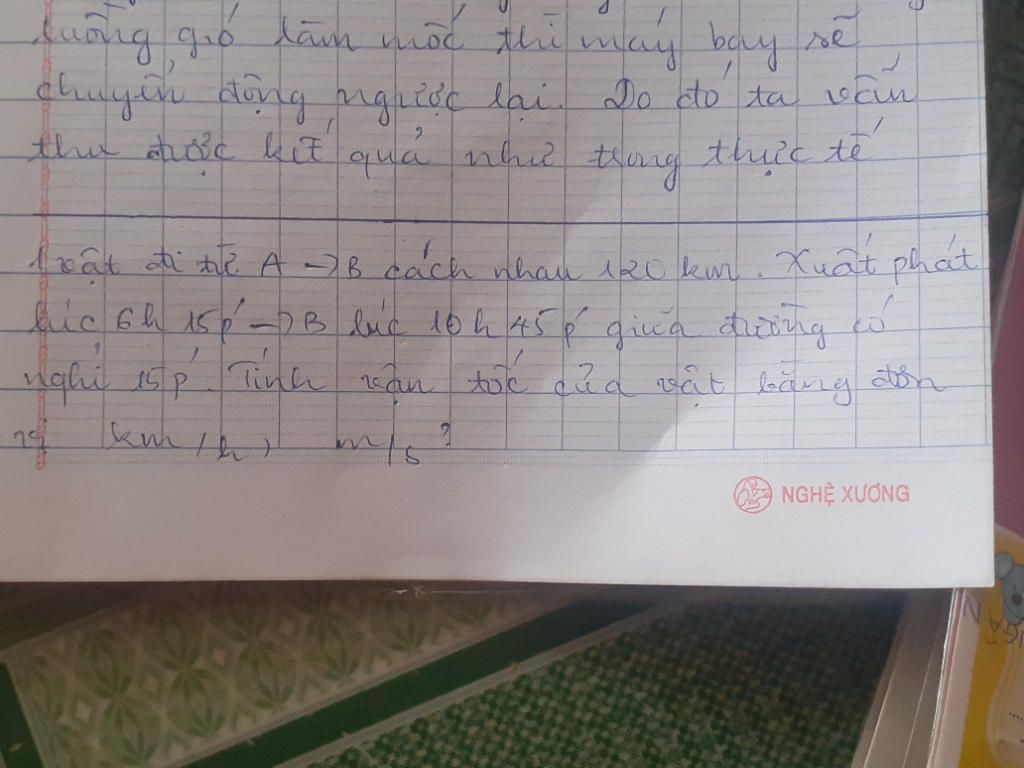 luồng gió làm mốc thì máy bay sẽ
chuyển động ngược lại. Do đó ta vẫn
thu được kết quả như trong thực tế
1 vật đi từ A → B cách nhau 120 km. Xuất phát
lúc 6h 15p' → B lúc 10h 45p' giữa đường có
nghỉ 15p'. Tính vận tốc của vật bằng đơn
vị km/h, m/s?
NGHỆ XƯƠNG